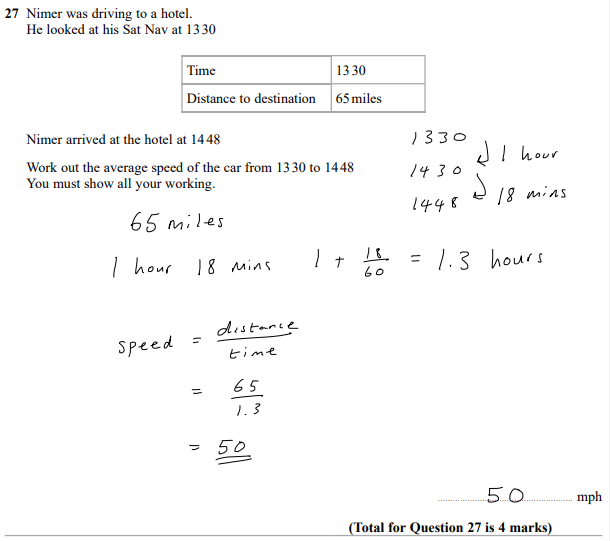 27 Nimer was driving to a hotel.
He looked at his Sat Nav at 13 30
Time 13 30
Distance to destination 65 miles
Nimer arrived at the hotel at 14 48
Work out the average speed of the car from 13 30 to 14 48
You must show all your working.
1330
1430
1448
1 hour
18 mins
65 miles
1 hour 18 mins 1 + 18/60 = 1.3 hours
speed = distance/time
= 65/1.3
= 50
50 mph
(Total for Question 27 is 4 marks)